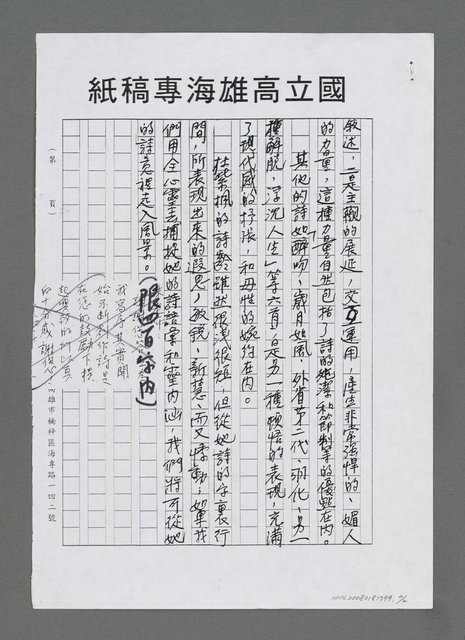 國立高雄海專稿紙
敘述,二是主觀的展延,交互運用,產生非常強悍的、媚人
的力量,這種力量自然包括了詩的純潔和節制等的優點在內。
其他的詩如醉吻、歲月如風、外省第二代、羽化、另一
種解脫、浮沉人生」等六首,是另一種領悟的表現,充滿
了現代感的抒張,和母性的婉約在內。
杜紫楓的詩齡雖然很淺很短,但從她詩的字裏行
間,所表現出來的遐思、敏銳、新慧、而又悸動;如果我
們用全心靈去捕捉她的詩語言和靈內涵,我們將可從她
的詩意裡走入風景。(限四百字內)
(第 頁)
高雄市楠梓區海專路一四二號
NMTL20080181799 2/2